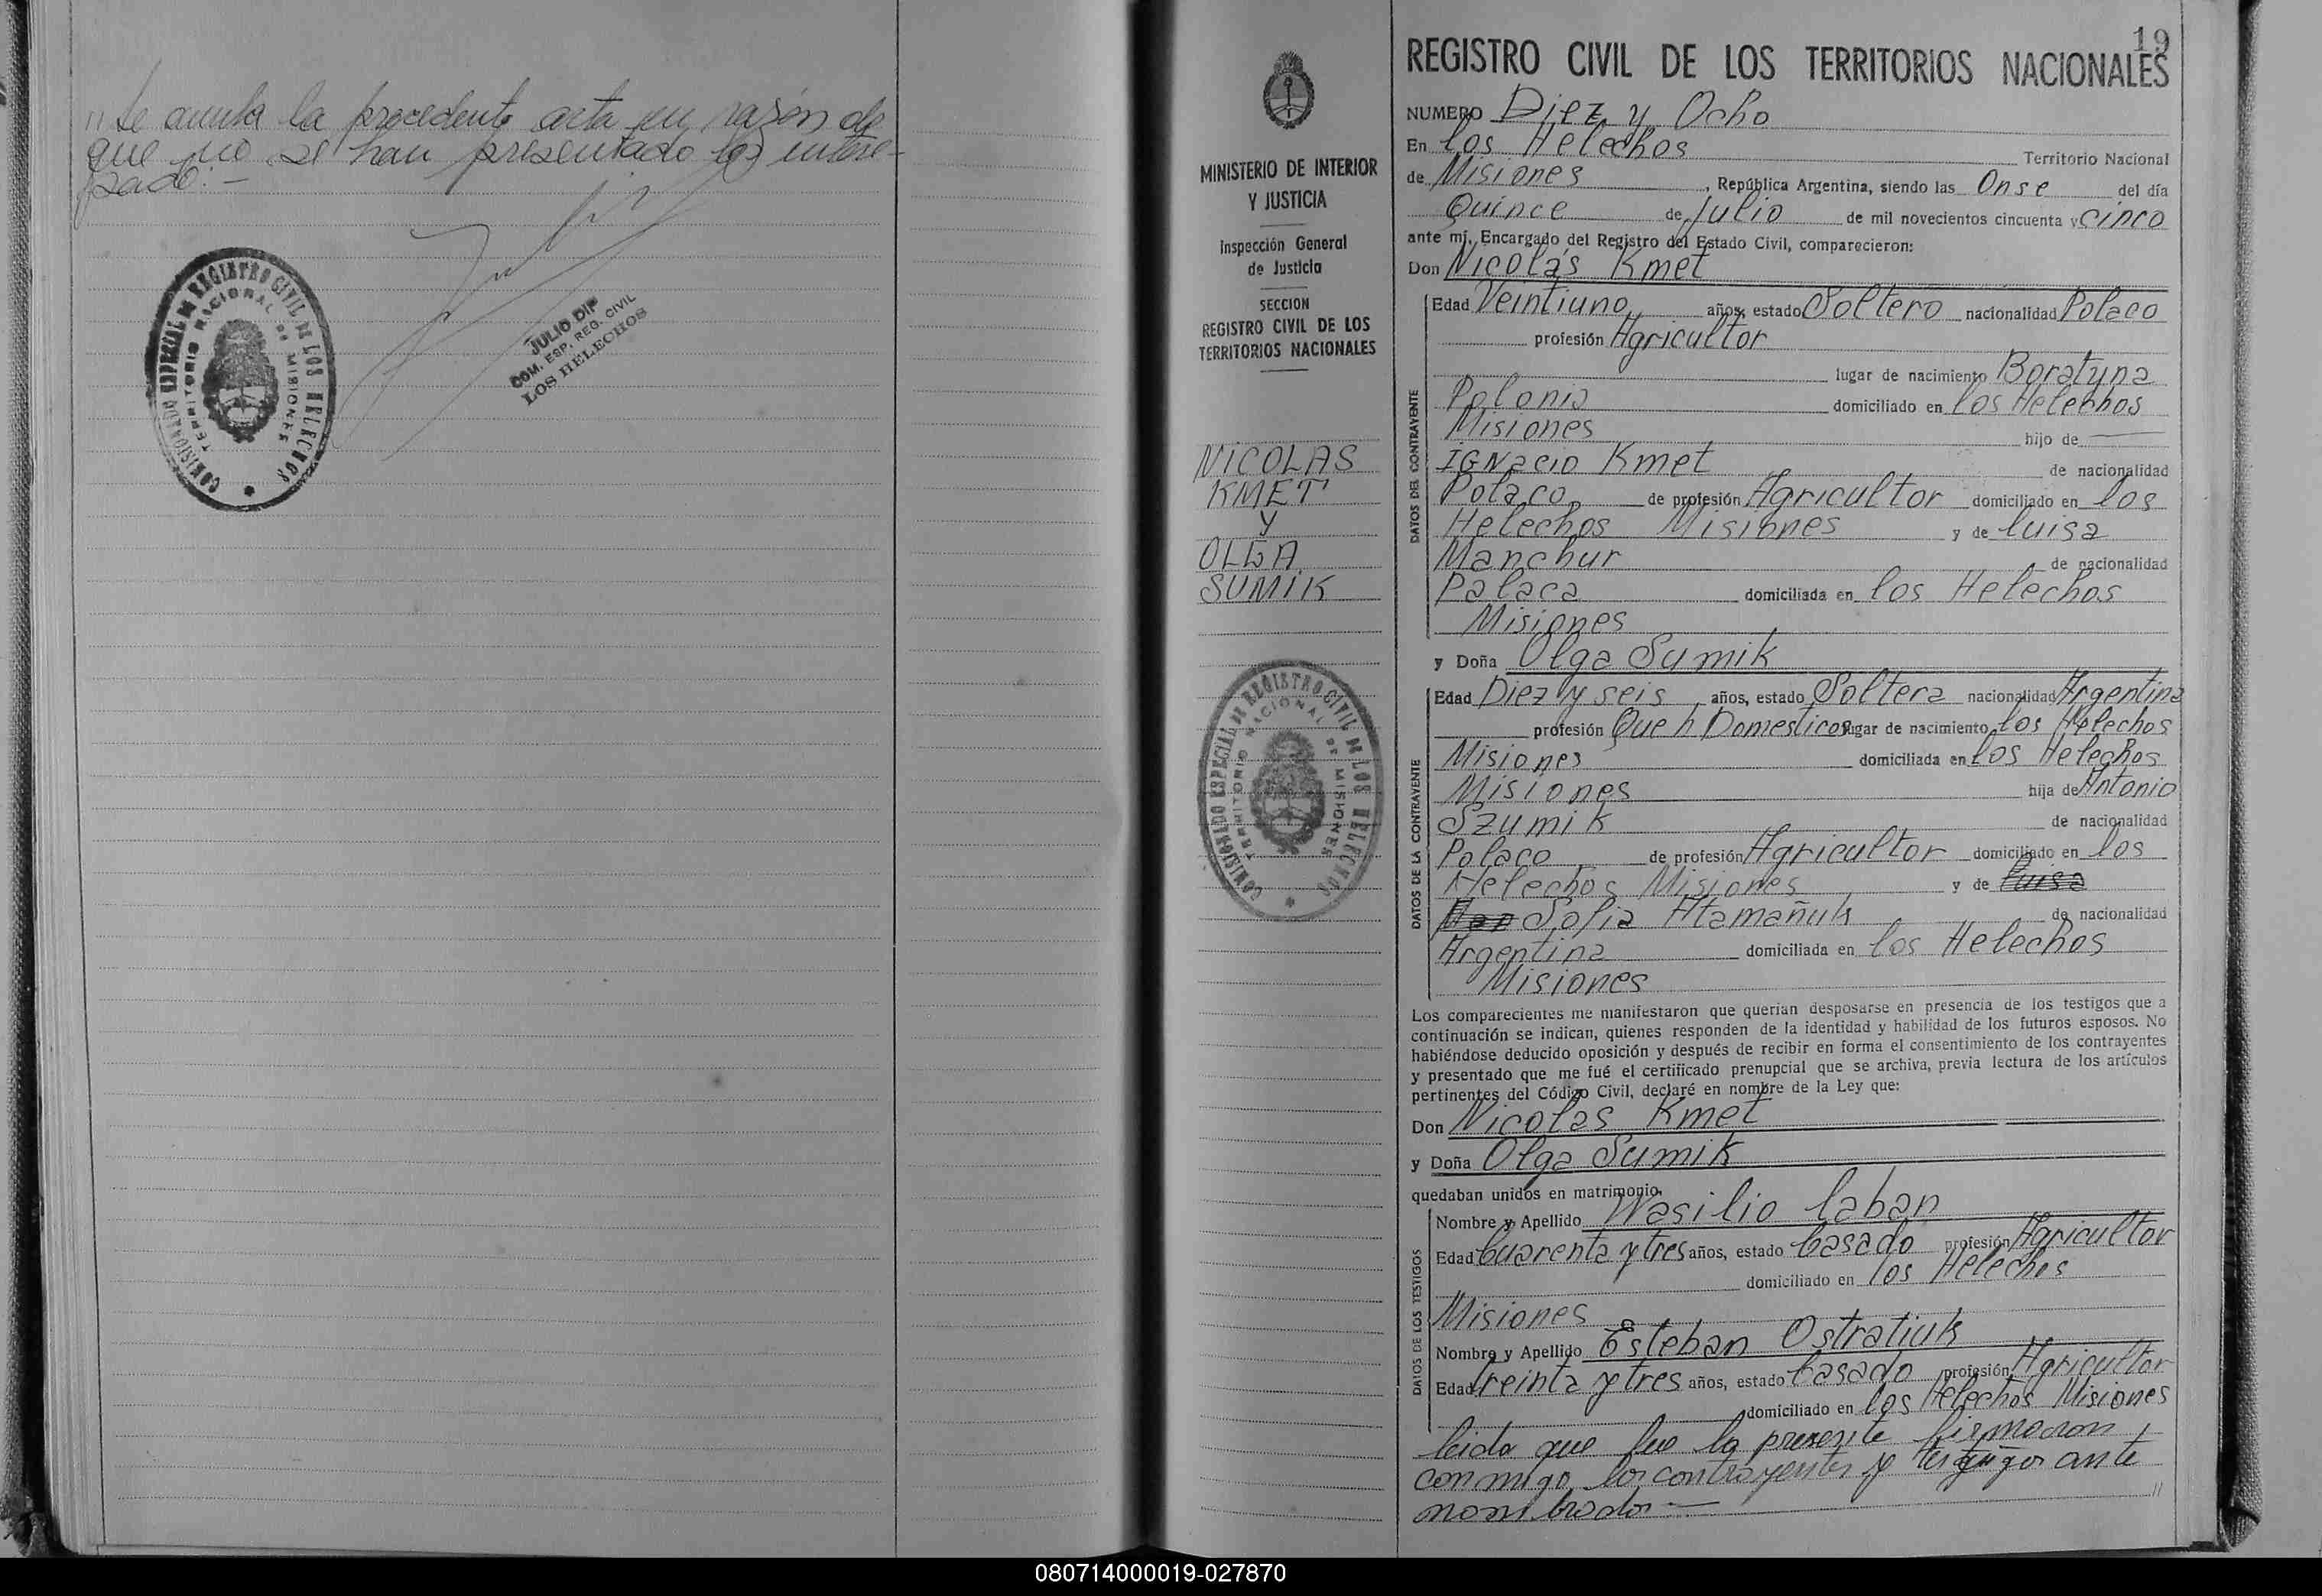 "Se anula la precedente acta en razón de
que no se han presentado los intere-
sado.-
COMISIONADO ESPECIAL DE REGISTRO CIVIL DE LOS HELECHOS
TERRITORIO NACIONAL DE MISIONES
JULIO DIP
COM. ESP. REG. CIVIL
LOS HELECHOS
MINISTERIO DE INTERIOR
Y JUSTICIA
Inspección General
de Justicia
SECCION
REGISTRO CIVIL DE LOS
TERRITORIOS NACIONALES
NICOLAS
KMET
Y
OLGA
SUMIK
COMISIONADO ESPECIAL DE REGISTRO CIVIL DE LOS HELECHOS
TERRITORIO NACIONAL DE MISIONES
19
REGISTRO CIVIL DE LOS TERRITORIOS NACIONALES
NUMERO Diez y Ocho
En los Helechos Territorio Nacional
de Misiones, República Argentina, siendo las Onse del día
Quince de Julio de mil novecientos cincuenta y cinco
ante mí, Encargado del Registro del Estado Civil, comparecieron:
Don Nicolás Kmet
Edad Veintiuno años, estado Soltero nacionalidad Polaco
profesión Agricultor
lugar de nacimiento Boratyna
Polonia domiciliado en los Helechos
Misiones hijo de
IGNacio Kmet de nacionalidad
Polaco de profesión Agricultor domiciliado en los
Helechos Misiones y de luisa
Manchur de nacionalidad
Palaca domiciliada en los Helechos
Misiones
y Doña Olga Sumik
Edad Diez y seis años, estado Soltera nacionalidad Argentina
profesión Que h Domesticos lugar de nacimiento los Helechos
Misiones domiciliada en los Helechos
Misiones hija de Antonio
Szumik de nacionalidad
Polaco de profesión Agricultor domiciliado en los
Helechos Misiones y de luisa
Man Sofia Atamañuk de nacionalidad
Argentina domiciliada en los Helechos
Misiones
DATOS DEL CONTRAYENTE
DATOS DE LA CONTRAYENTE
Los comparecientes me manifestaron que querían desposarse en presencia de los testigos que a
continuación se indican, quienes responden de la identidad y habilidad de los futuros esposos. No
habiéndose deducido oposición y después de recibir en forma el consentimiento de los contrayentes
y presentado que me fué el certificado prenupcial que se archiva, previa lectura de los artículos
pertinentes del Código Civil, declaré en nombre de la Ley que:
Don Nicolas Kmet
y Doña Olga Sumik
quedaban unidos en matrimonio.
Nombre y Apellido Wasilio laban
Edad Cuarenta y tres años, estado Casado profesión Agricultor
domiciliado en los Helechos
Misiones
Nombre y Apellido Esteban Ostratiuk
Edad treinta y tres años, estado Casado profesión Agricultor
domiciliado en los Helechos Misiones
DATOS DE LOS TESTIGOS
leida que fue la presente firmaron
conmigo los contrayentes y testigos ante
nombrados-
"
080714000019-027870